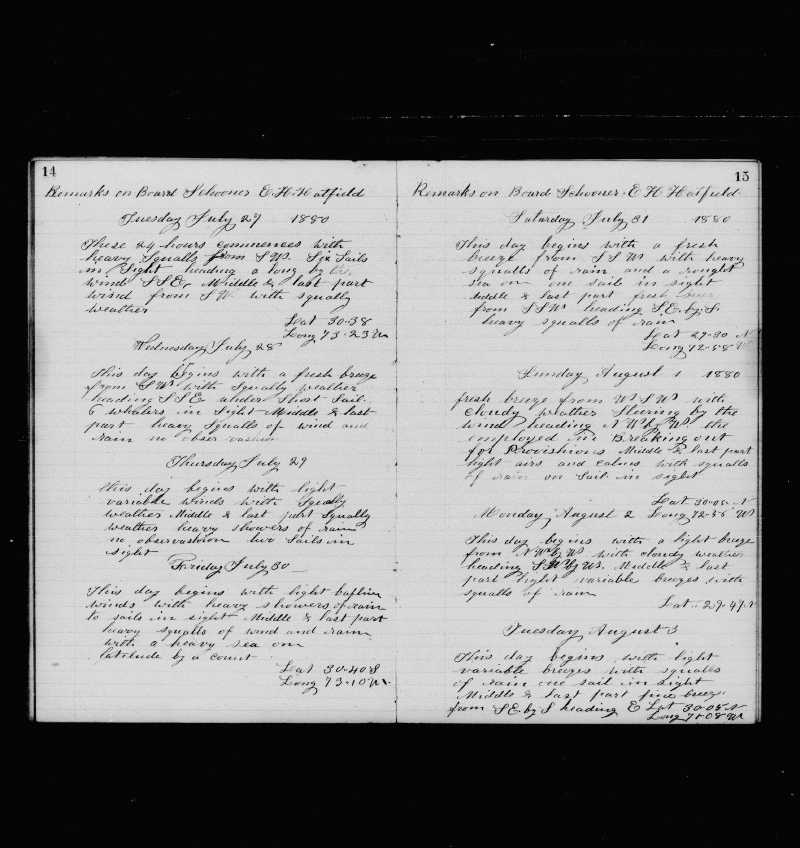 14
Remarks on Board Schooner E. H. Hatfield
Tuesday July 27 1880
These 24 hours commences with
heavy Squally from S W. Six Sails
in Sight heading a long by the
wind S S E, Middle & last part
wind from S W with squally
weather
Lat 30-38
Long 73-23 W
Wednesday July 28
This day begins with a fresh breeze
from S W with Squally weather
heading S S E under Short Sail.
6 whalers in Sight Middle & last
part heavy Squalls of wind and
rain no observashion
Thursday July 29
this day begins with light
variable winds with Squally
weather Middle & last part Squally
weather heavy showers of rain
no observastion two Sails in
sight
Friday July 30
This day begins with light baflin
winds with heavy showers of rain
to sails in sight Middle & last part
heavy squalls of wind and rain
with a heavy sea on
latitude by a count
Lat 30-40 S
Long 73-10 W.
15
Remarks on Board Schooner E H Hatfield
Saturday July 31 1880
This day begins with a fresh
breeze from S S W with heavy
squalls of rain and a rought
sea on one sail in sight
Middle & last part fresh
from S S W heading S E. by S.
heavy squalls of rain
Lat 29-30 N
Long 72-58 W
Sunday August 1 1880
fresh breeze from W S W with
cloudy weather Stearing by the
wind heading N W by W. the
employed in Breaking out
for Provishions Middle & last part
light airs and calms with squalls
of rain on Sail in sight
Lat 30-05 N
Monday August 2 Long 72-55 W
This day begins with a light breeze
from N W by W with cloudy weather
heading S W by W. Middle & last
part light variable breezes with
squalls of rain
Lat. 29-47 N
Tuesday August 3
This day begins with light
variable breezes with squalls
of rain one sail in sight
Middle & last part fine breeze
from S E. by S heading E Lat 30-05 N
Long 71-08 W